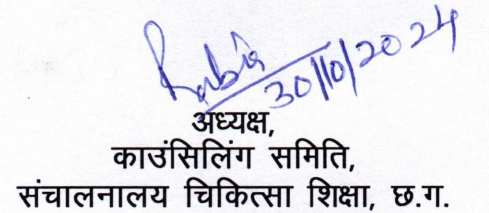 Rabia
30/10/2024
अध्यक्ष,
काउंसिलिंग समिति,
संचालनालय चिकित्सा शिक्षा, छ.ग.